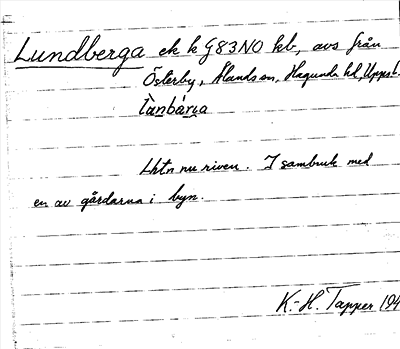 Lundberga ek k G83NO kb, avs från
Österby, Ålands sn, Hagunda hd, Upps l.
lànbárɩa
Lhtn nu riven. I sambruk med
en av gårdarna i byn.
K.-H. Tapper 194